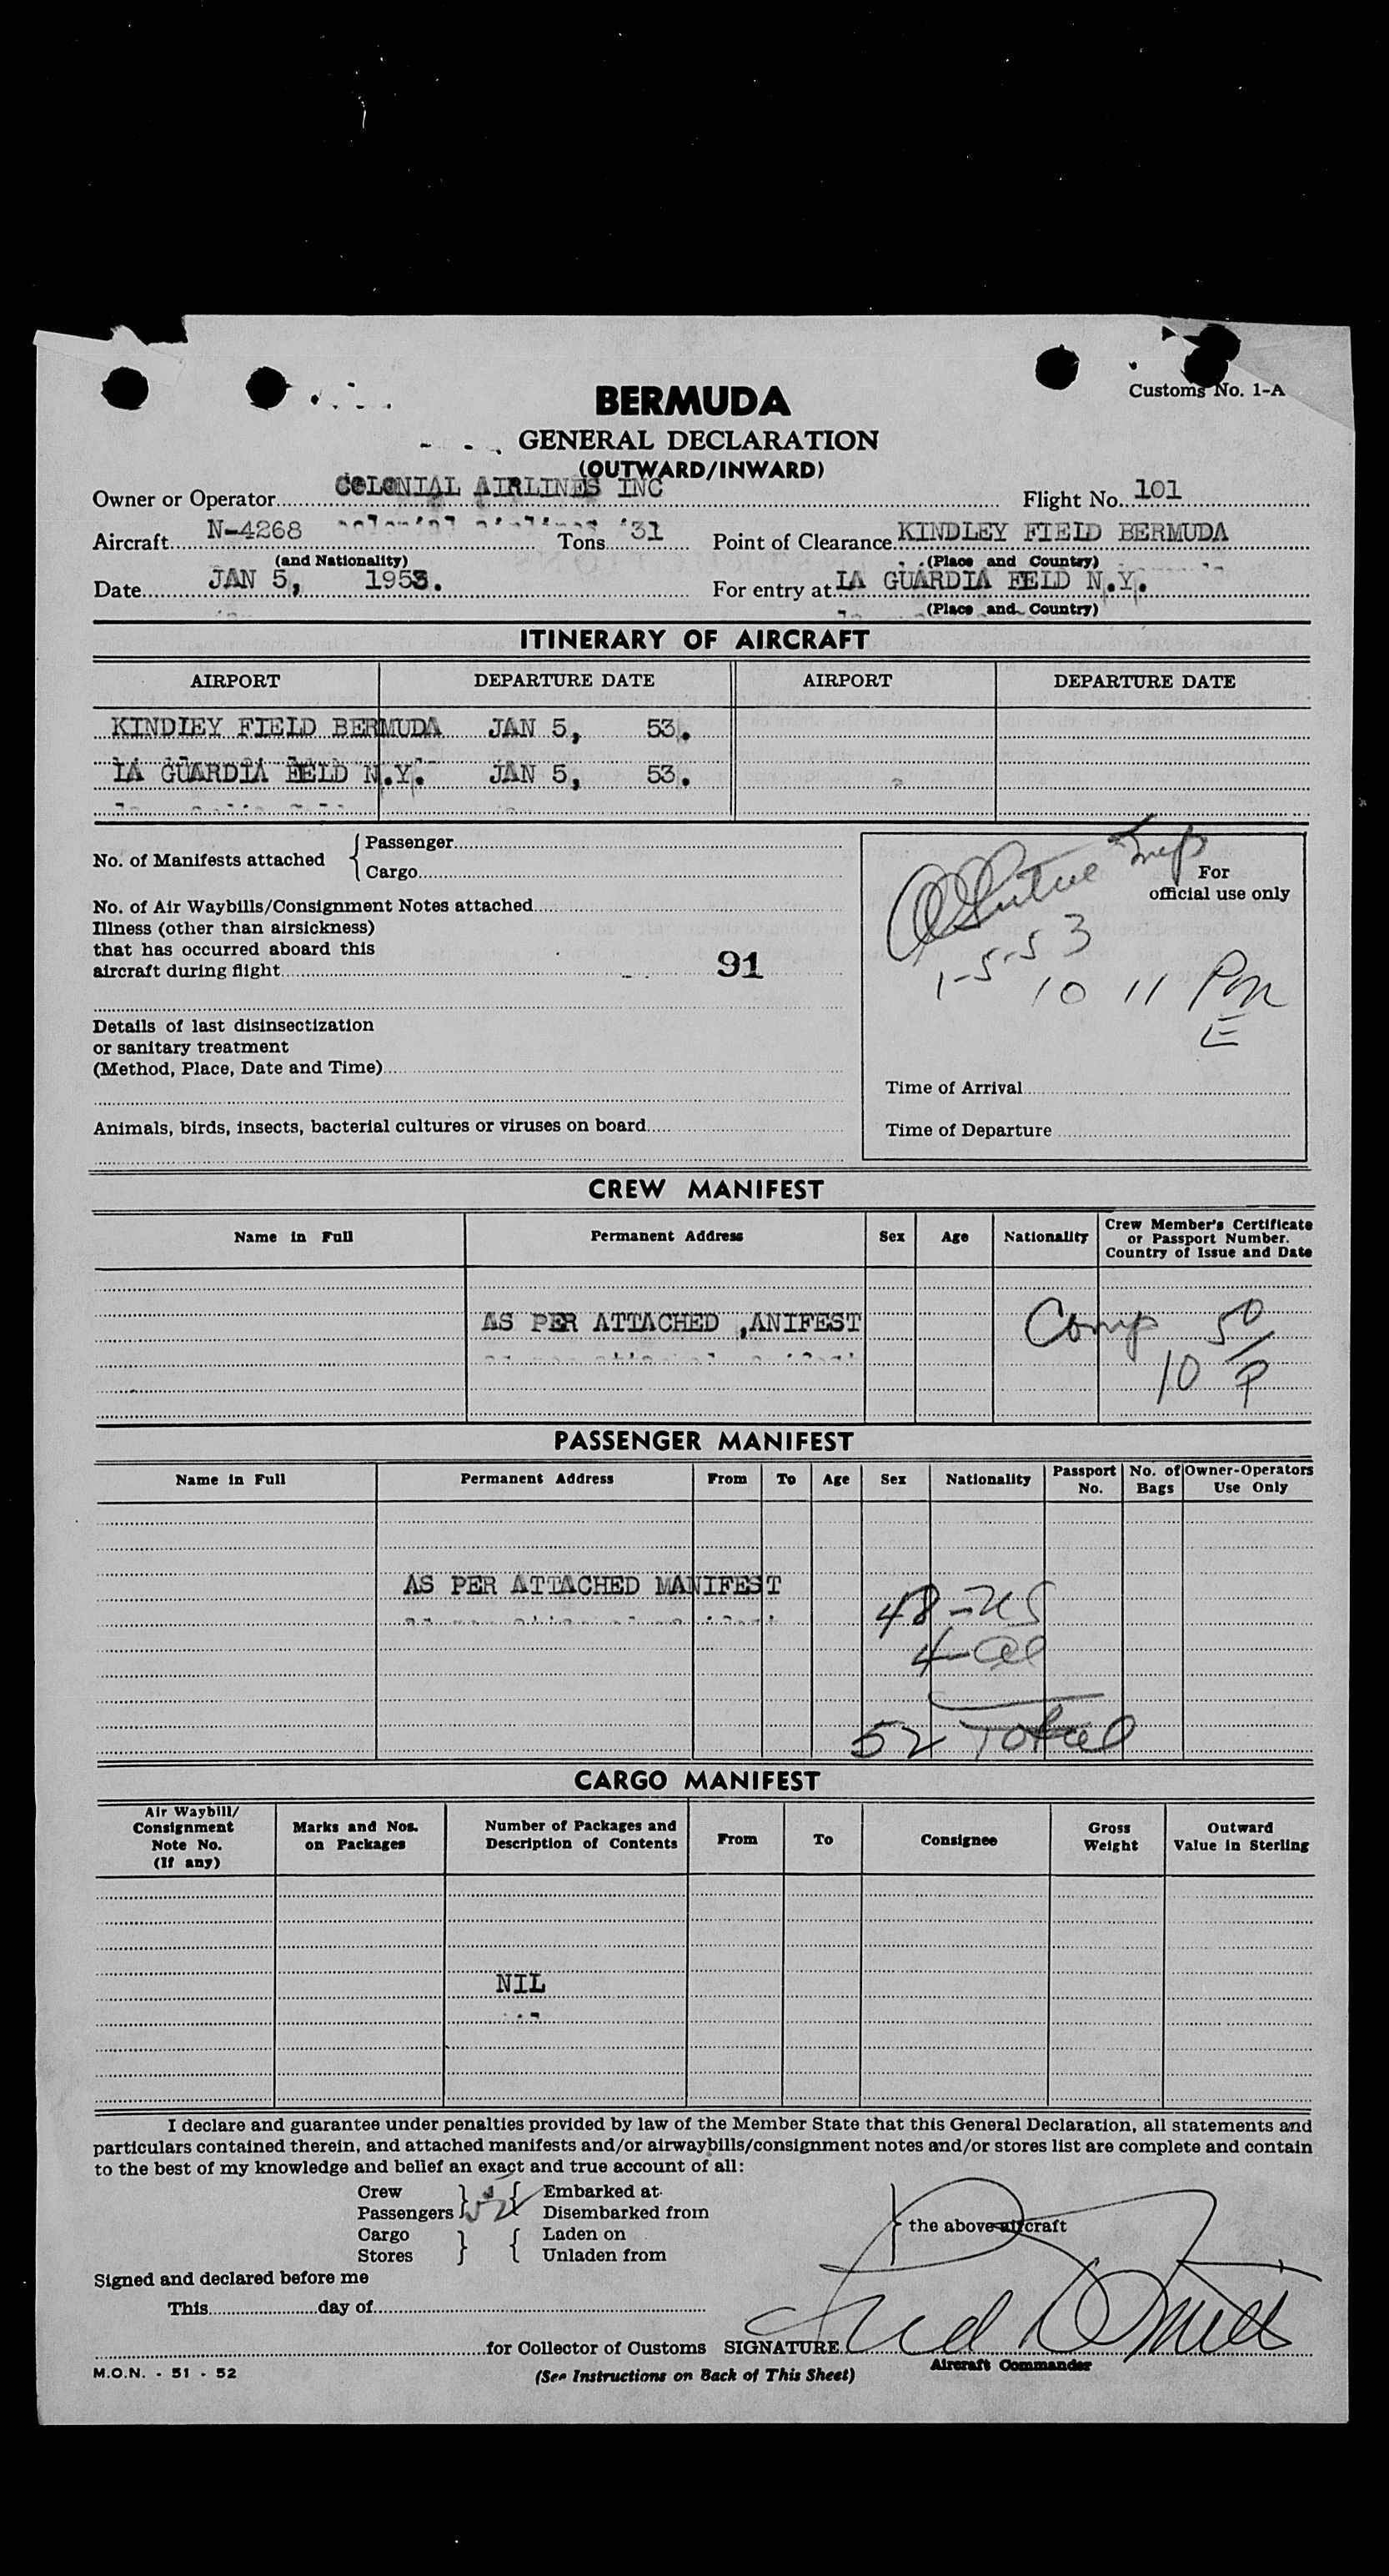 Customs No. 1-A
BERMUDA
GENERAL DECLARATION
(OUTWARD/INWARD)
Owner or Operator COLONIAL AIRLINES INC Flight No. 101
Aircraft N-4268 Tons 31 Point of Clearance KINDLEY FIELD BERMUDA
(and Nationality) (Place and Country)
Date JAN 5, 1953. For entry at LA GUARDIA FEILD N.Y.
(Place and Country)
ITINERARY OF AIRCRAFT
AIRPORT DEPARTURE DATE AIRPORT DEPARTURE DATE
KINDLEY FIELD BERMUDA JAN 5, 53.
LA GUARDIA FEILD N.Y. JAN 5, 53.
No. of Manifests attached { Passenger
Cargo
No. of Air Waybills/Consignment Notes attached
Illness (other than airsickness)
that has occurred aboard this
aircraft during flight 91
Details of last disinsectization
or sanitary treatment
(Method, Place, Date and Time)
Animals, birds, insects, bacterial cultures or viruses on board
For
official use only
1-5-53
10 11 Pm
E
Time of Arrival
Time of Departure
CREW MANIFEST
Name in Full Permanent Address Sex Age Nationality Crew Member's Certificate
or Passport Number.
Country of Issue and Date
AS PER ATTACHED ,ANIFEST Comp 50
10 P
PASSENGER MANIFEST
Name in Full Permanent Address From To Age Sex Nationality Passport No. No. of Bags Owner-Operators Use Only
AS PER ATTACHED MANIFEST
48-US
4-
52 Total
CARGO MANIFEST
Air Waybill/ Consignment Note No. (If any) Marks and Nos. on Packages Number of Packages and Description of Contents From To Consignee Gross Weight Outward Value in Sterling
NIL
I declare and guarantee under penalties provided by law of the Member State that this General Declaration, all statements and
particulars contained therein, and attached manifests and/or airwaybills/consignment notes and/or stores list are complete and contain
to the best of my knowledge and belief an exact and true account of all:
Crew Embarked at
Passengers } 52 { Disembarked from } the above aircraft
Cargo Laden on
Stores } { Unladen from
Signed and declared before me
This day of
for Collector of Customs SIGNATURE
Aircraft Commander
M.O.N. - 51 - 52 (See Instructions on Back of This Sheet)